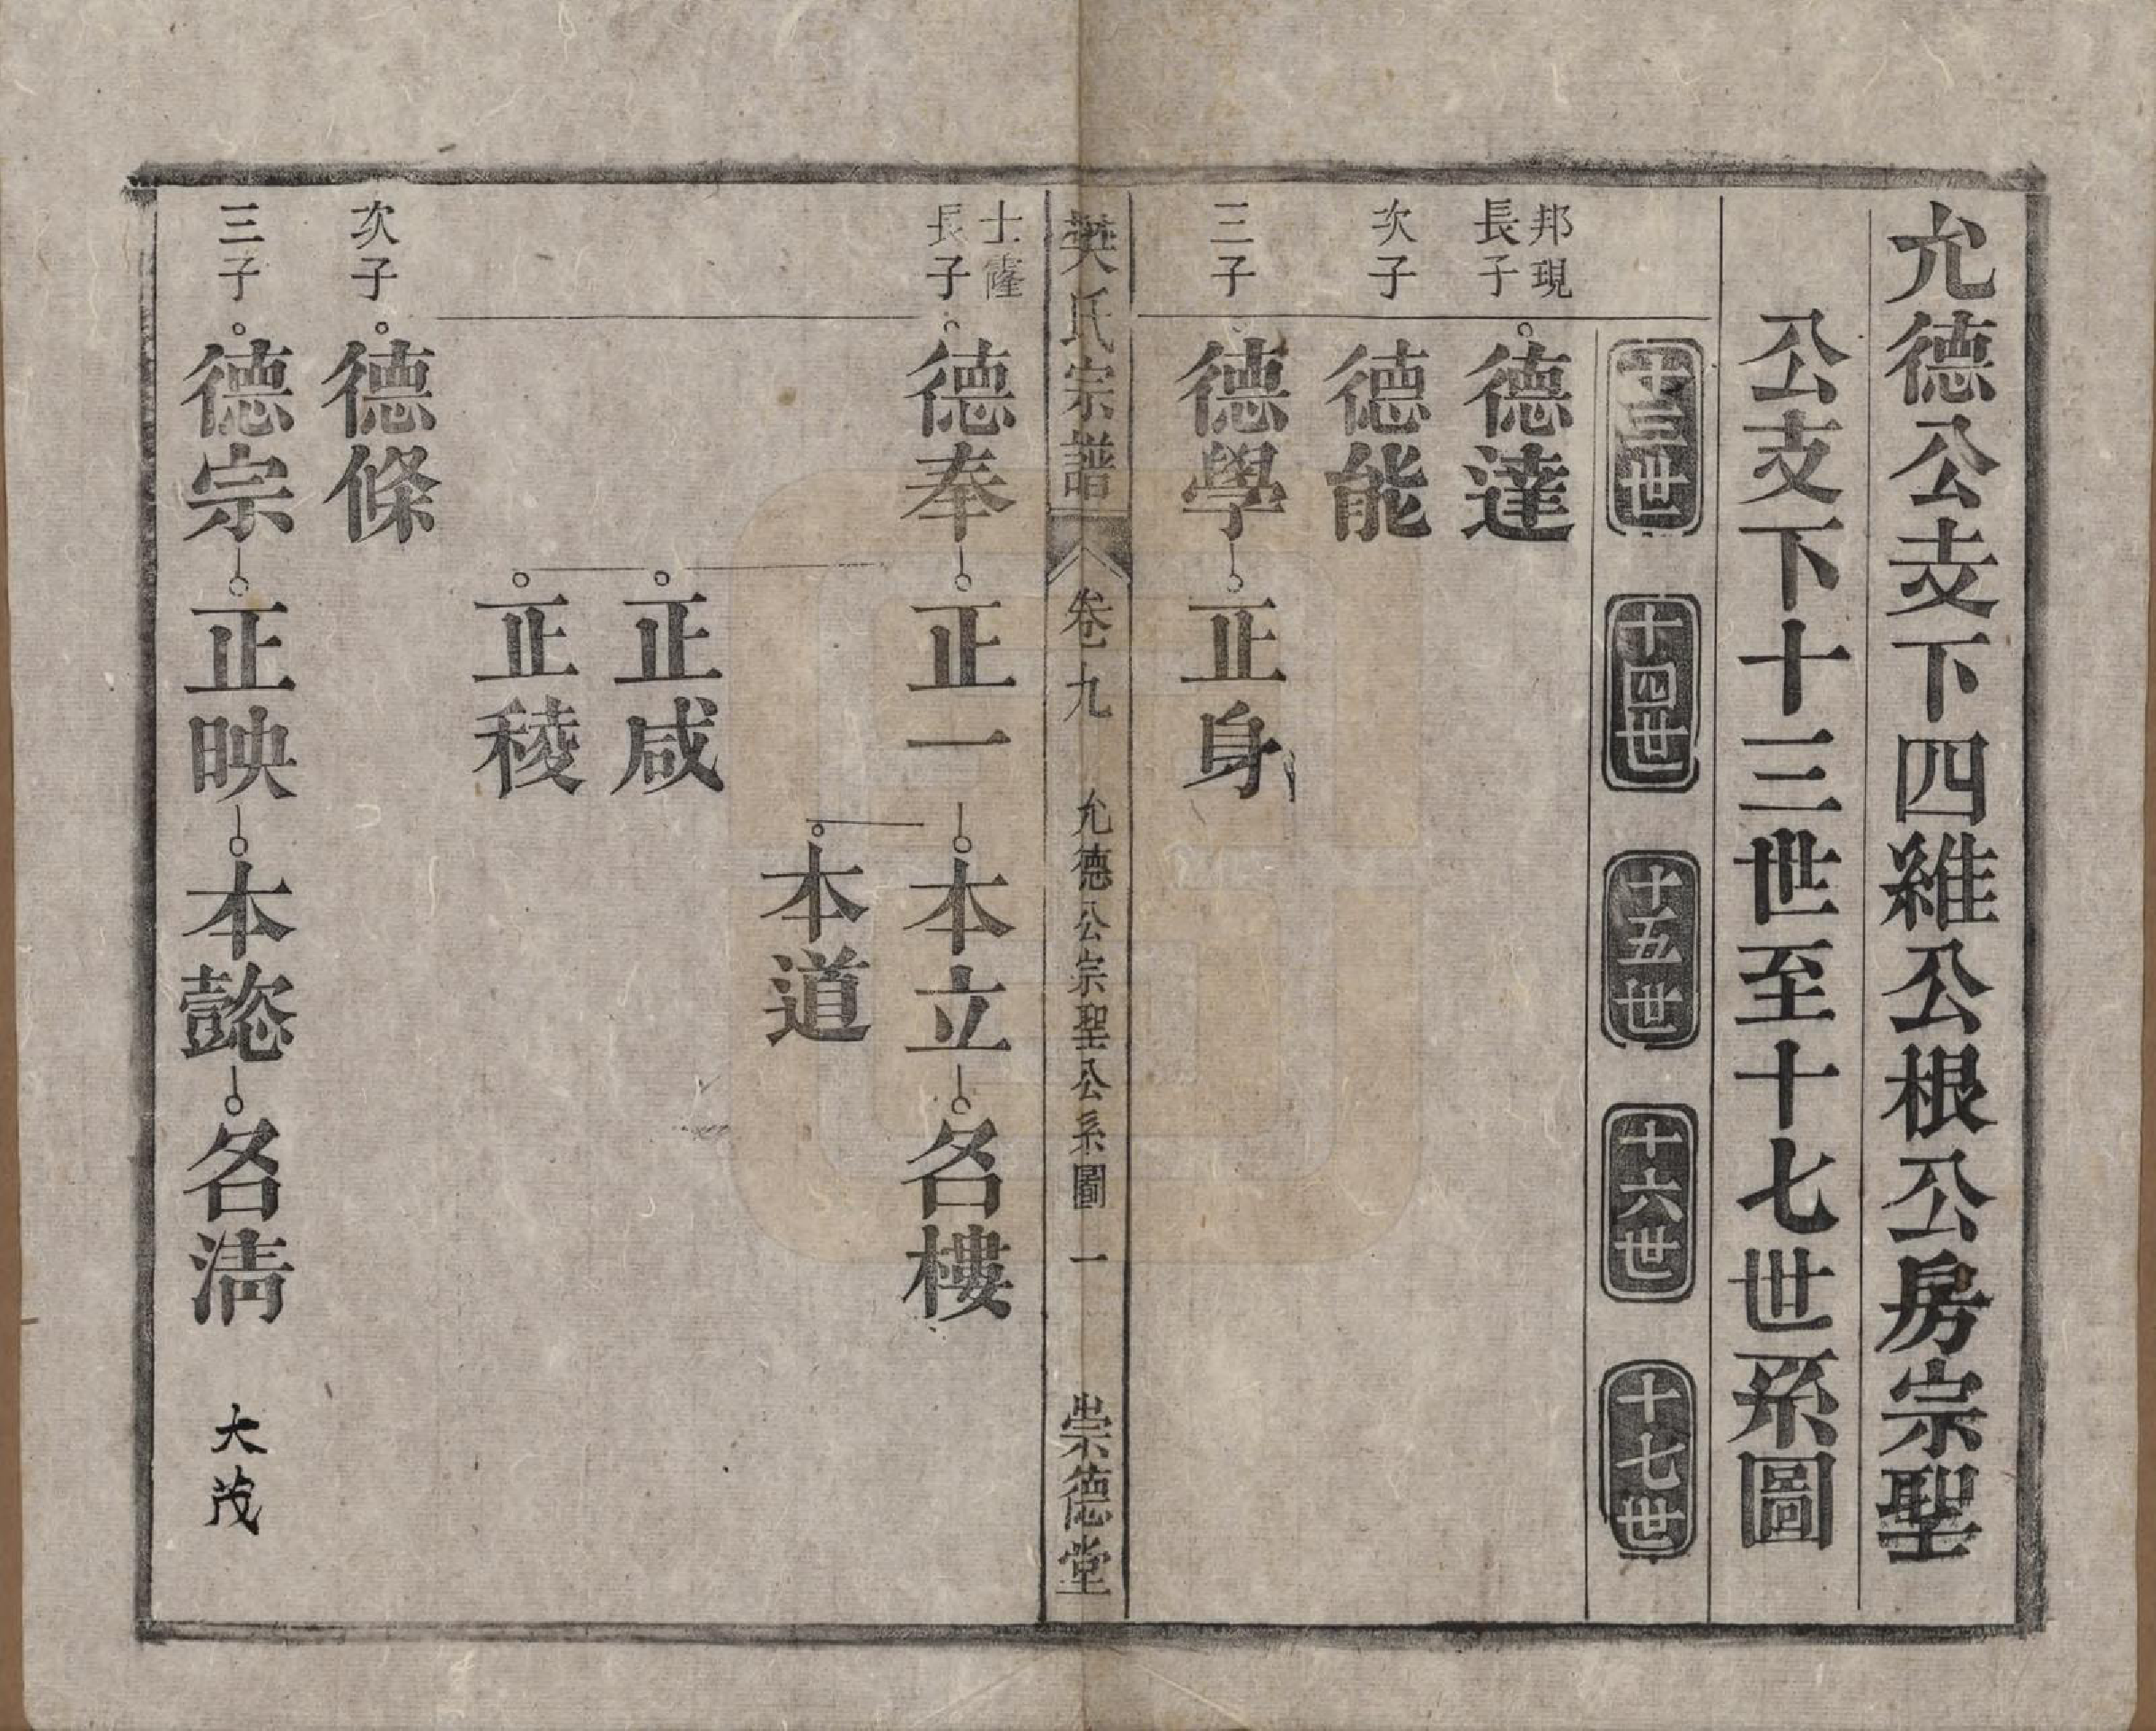 允德公支下四維公根公房宗聖
公支下十三世至十七世系圖
十三世 十四世 十五世 十六世 十七世
邦現
長子 德達
次子 德能
三子 德學 正身
樊氏宗譜 卷九 允德公宗聖公系圖 一 崇德堂
士窿
長子 德奉 正一 本立 名樓
本道
正咸
正稜
次子 德條
三子 德宗 正映 本懿 名淸 大茂